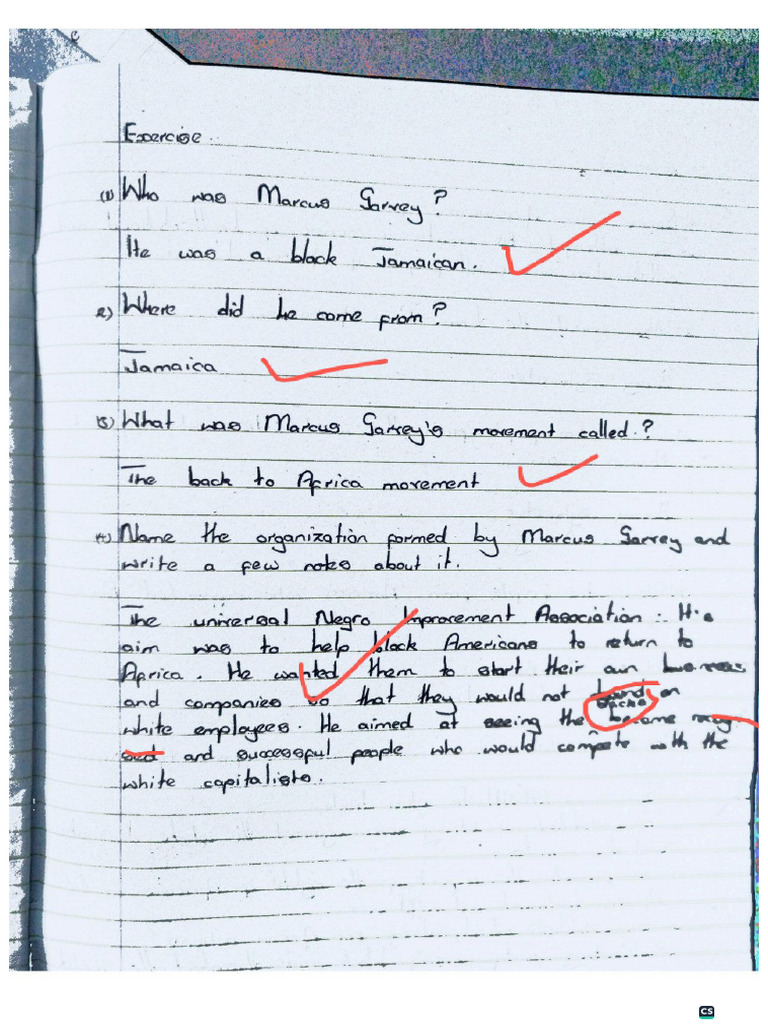 Exercise.
(1) Who was Marcus Garvey?
He was a black Jamaican.
2) Where did he come from?
Jamaica
(3) What was Marcus Garvey's movement called.?
The back to Africa movement
(4) Name the organization formed by Marcus Garvey and
write a few notes about it.
The universal Negro Improvement Association. His
aim was to help black Americans to return to
Africa. He wanted them to start their own business
and companies so that they would not on
white employees. He aimed at seeing the become
and successful people who would compete with the
white capitalists.
CS